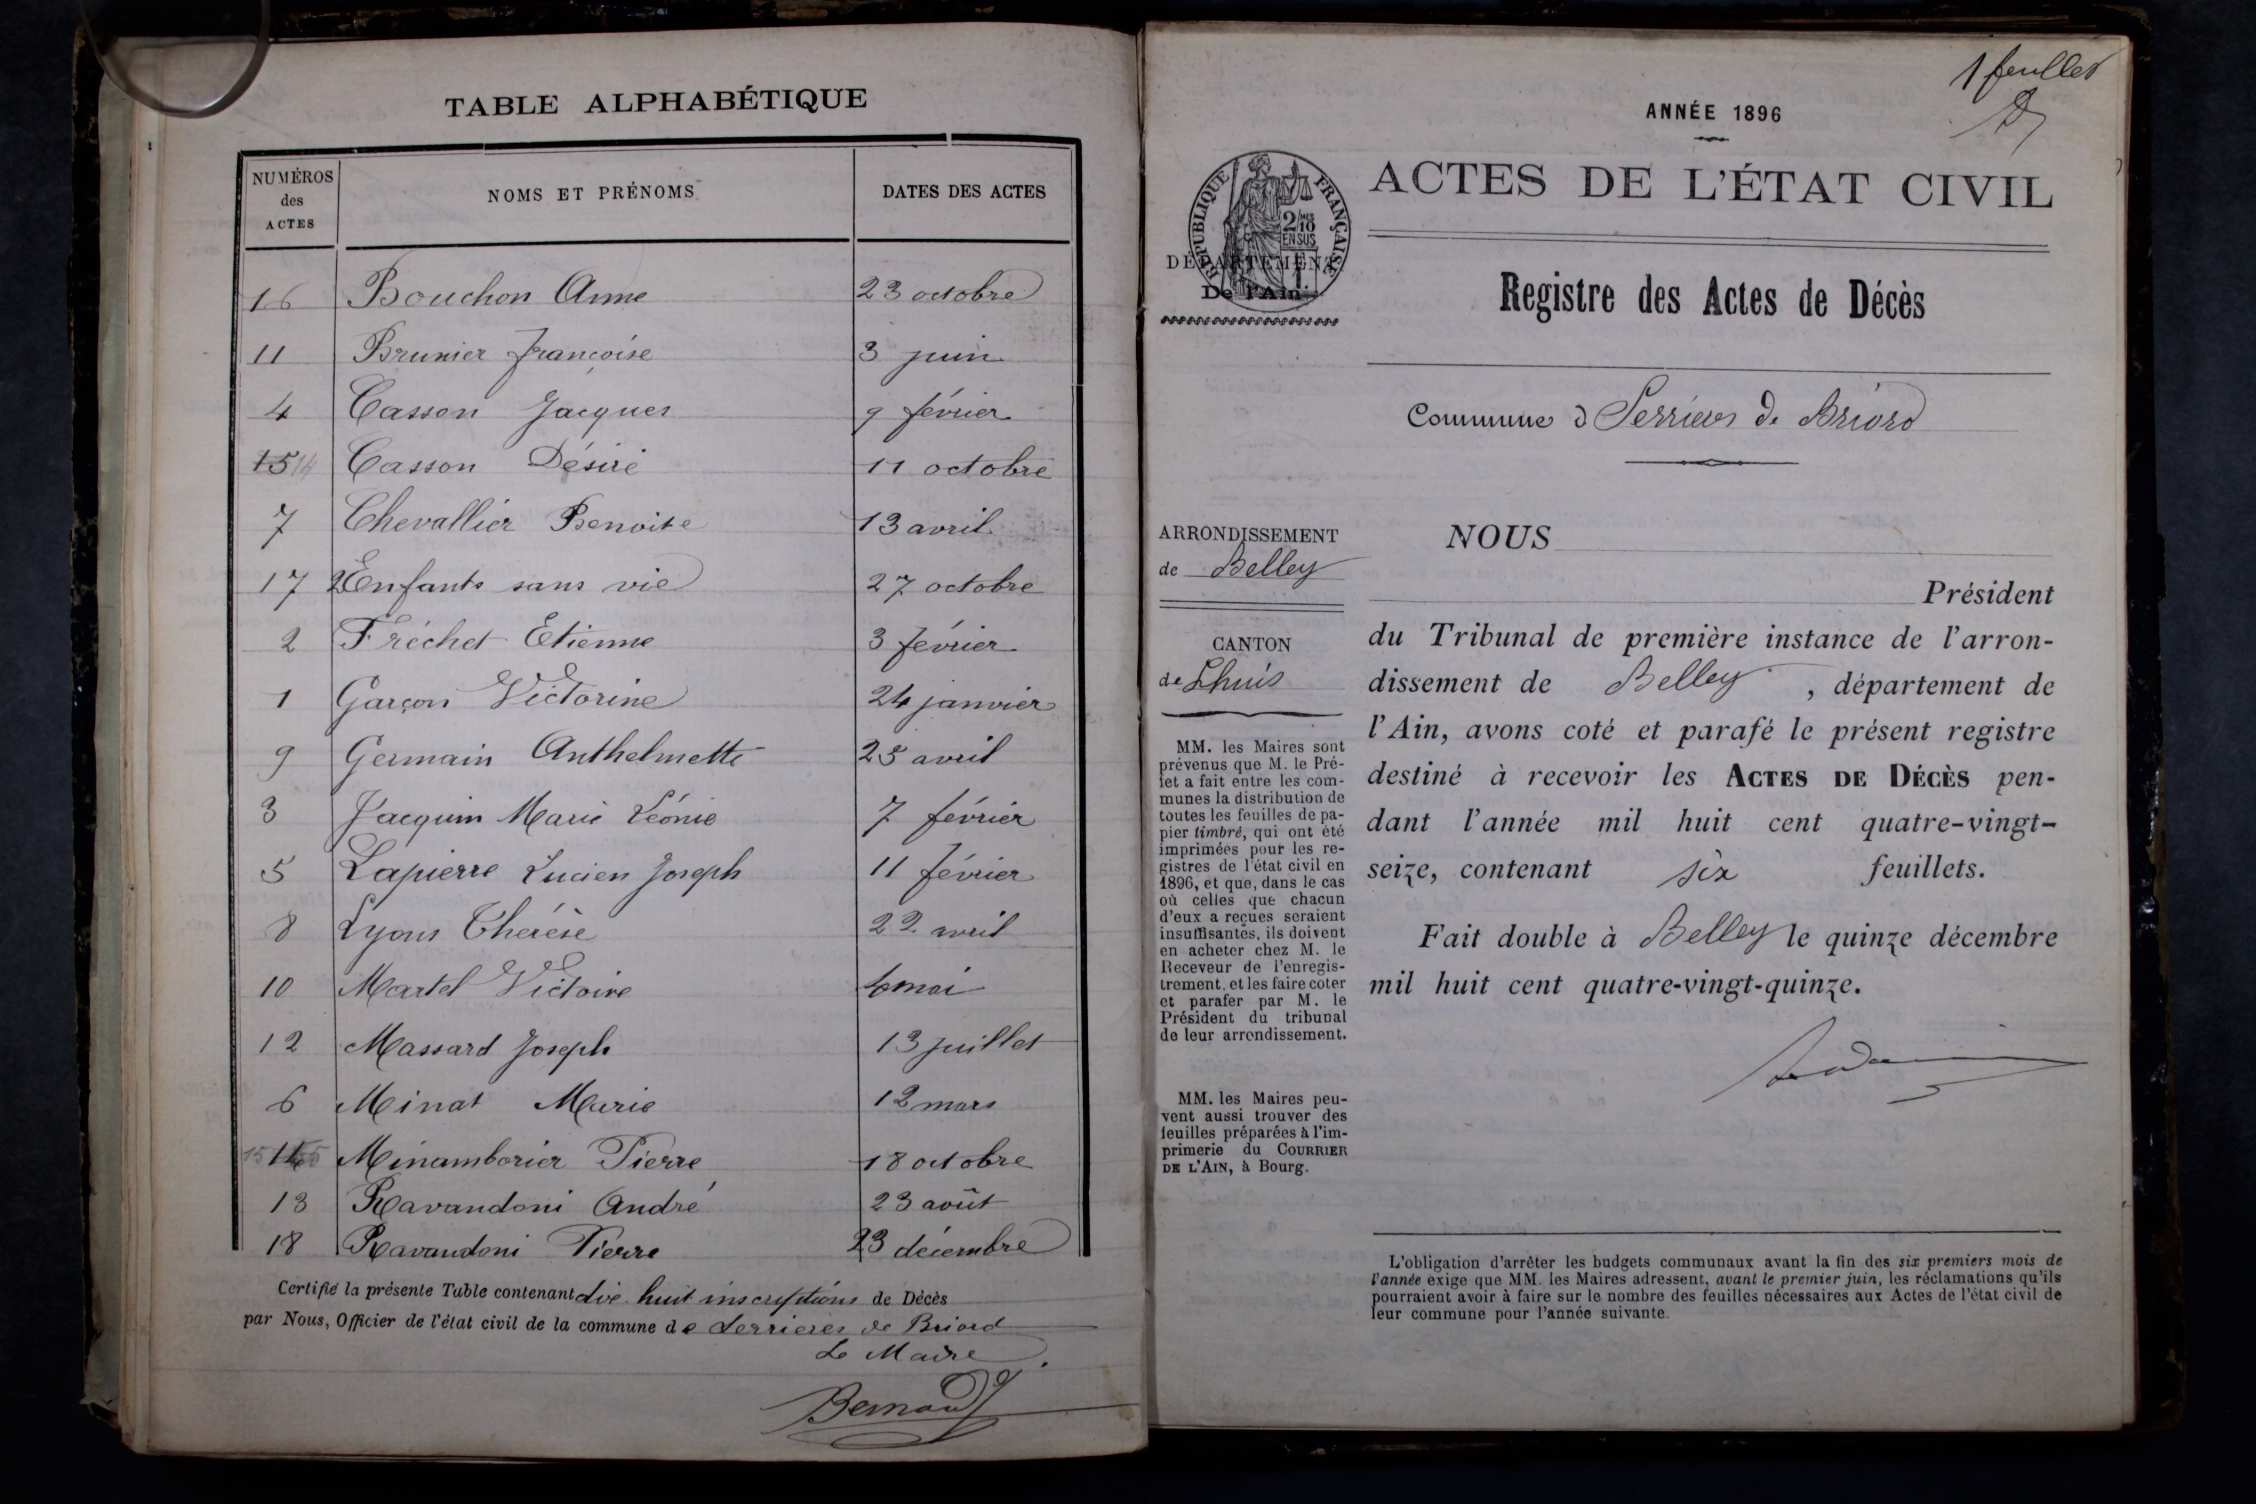 TABLE ALPHABÉTIQUE
NUMÉROS des ACTES NOMS ET PRÉNOMS DATES DES ACTES
16 Bouchon Anne 23 octobre
11 Brunier françoise 3 juin
4 Casson Jacques 9 février
15 14 Casson Désiré 11 octobre
7 Chevallier Benoite 13 avril
17 2 Enfants sans vie 27 octobre
2 Fréchet Etienne 3 février
1 Garçon Victorine 24 janvier
9 Germain Anthelmette 25 avril
3 Jacquin Marie Léonie 7 février
5 Lapierre Lucien Joseph 11 février
8 Lyons Thérèse 22 avril
10 Martel Victoire 6 mai
12 Massard Joseph 13 juillet
6 Minat Marie 12 mars
15 Minamborier Pierre 18 octobre
13 Ravandoni André 23 août
18 Ravandoni Pierre 23 décembre
Certifié la présente Table contenant dix huit inscriptions de Décès
par Nous, Officier de l'état civil de la commune de Serrieres de Briord
Le Maire
Bernard
1 feuillet
ANNÉE 1896
RÉPUBLIQUE FRANÇAISE
2/10 EN SUS
ACTES DE L'ÉTAT CIVIL
DÉPARTEMENT
De l'Ain
Registre des Actes de Décès
Commune d Serrieres de Briord
ARRONDISSEMENT
de Belley
CANTON
de Lhuis
MM. les Maires sont
prévenus que M. le Pré-
fet a fait entre les com-
munes la distribution de
toutes les feuilles de pa-
pier timbré, qui ont été
imprimées pour les re-
gistres de l'état civil en
1896, et que, dans le cas
où celles que chacun
d'eux a reçues seraient
insuffisantes, ils doivent
en acheter chez M. le
Receveur de l'enregis-
trement, et les faire coter
et parafer par M. le
Président du tribunal
de leur arrondissement.
MM. les Maires peu-
vent aussi trouver des
feuilles préparées à l'im-
primerie du COURRIER
DE L'AIN, à Bourg.
NOUS
Président
du Tribunal de première instance de l'arron-
dissement de Belley, département de
l'Ain, avons coté et parafé le présent registre
destiné à recevoir les ACTES DE DÉCÈS pen-
dant l'année mil huit cent quatre-vingt-
seize, contenant six feuillets.
Fait double à Belley le quinze décembre
mil huit cent quatre-vingt-quinze.
L'obligation d'arrêter les budgets communaux avant la fin des six premiers mois de
l'année exige que MM. les Maires adressent, avant le premier juin, les réclamations qu'ils
pourraient avoir à faire sur le nombre des feuilles nécessaires aux Actes de l'état civil de
leur commune pour l'année suivante.